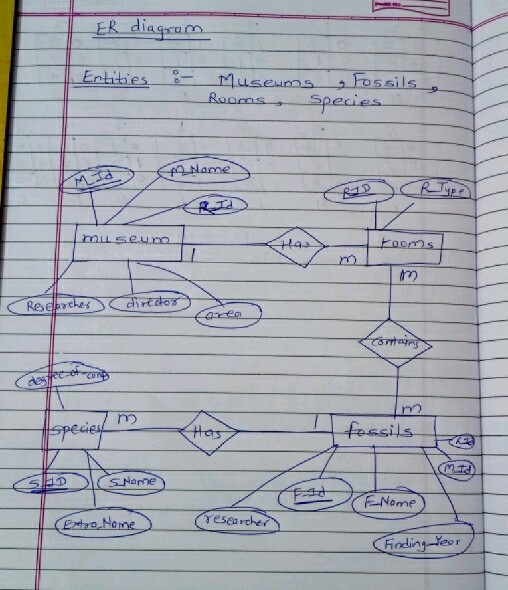 ER diagram
Entities :- Museums, Fossils,
Rooms, Species
M_Id
M_Name
R_Id
RID
R_Type
museum
1
Has
m
rooms
m
Researcher
director
area
contains
m
species
m
Has
1
fossils
R_Id
M_Id
S_ID
S_Name
Extra_Name
researcher
F_Id
F_Name
Finding_Year